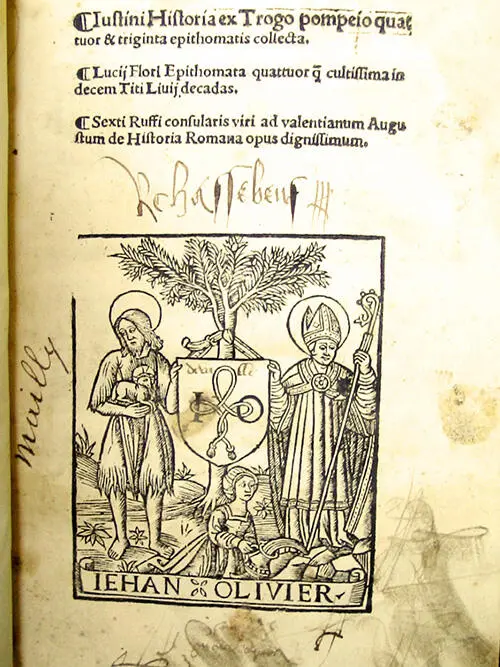 ¶Iustini Historia ex Trogo pompeio quat
tuor & triginta epithomatis collecta.
¶ Lucij Flori Epithomata quattuor q̄ cultissima in
decem Titi Liuij decadas.
¶ Sexti Ruffi consularis viri ad valentianum Augu
stum de Historia Romana opus dignissimum.
mailly
I O
IEHAN OLIVIER